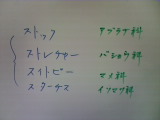 ストック アブラナ科
ストレチャー バショウ科
スイトピー マメ科
スターチス イソマツ科